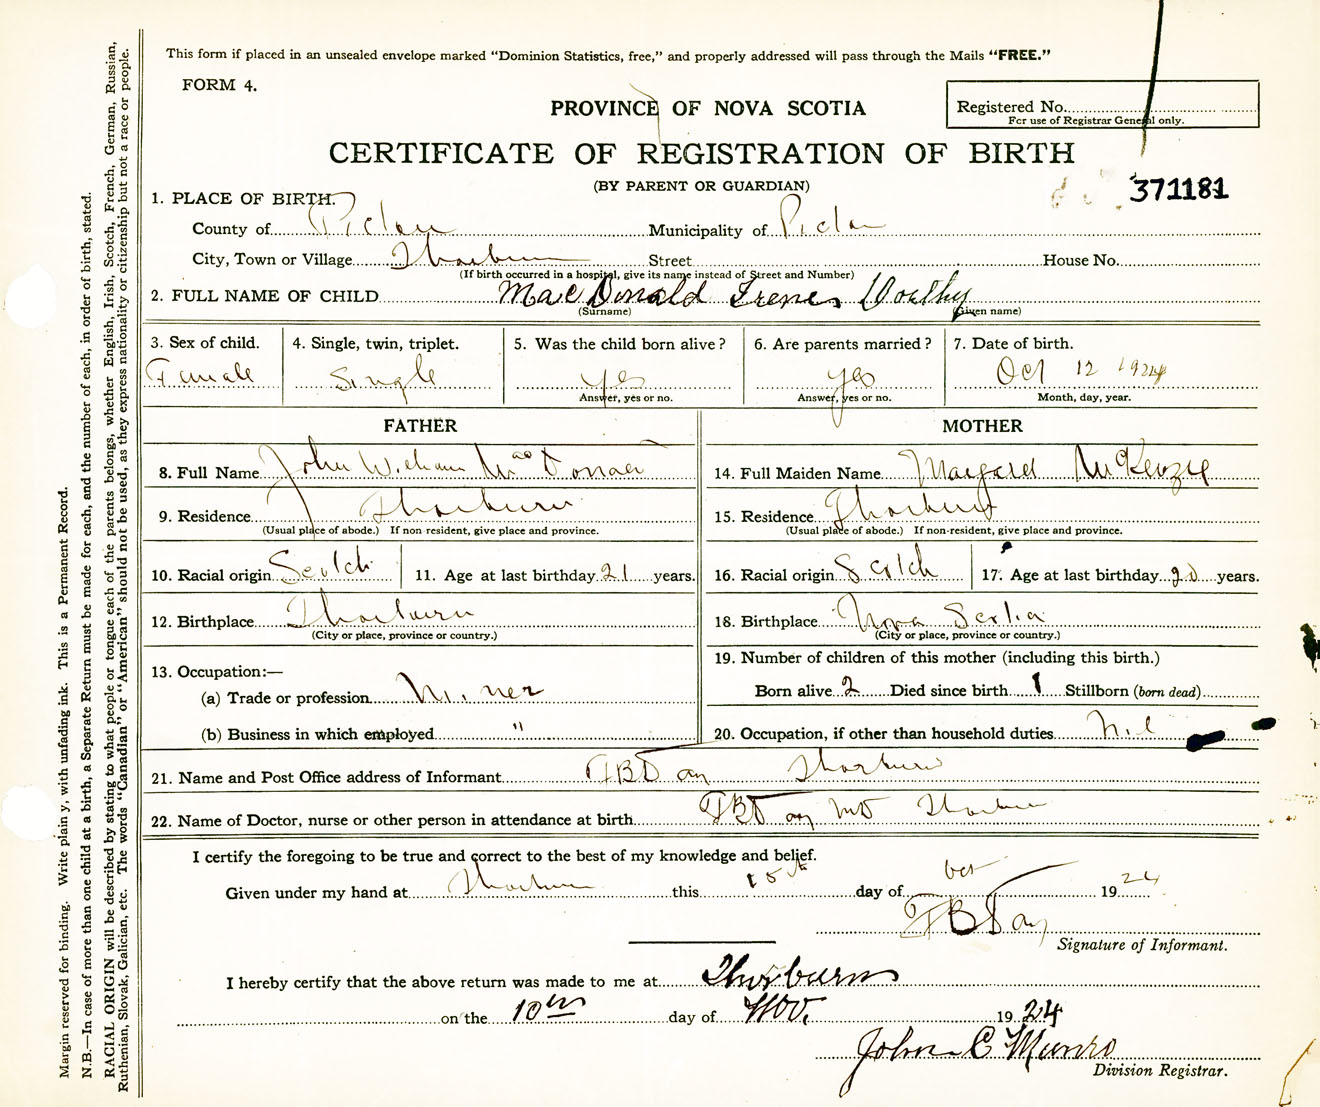 This form if placed in an unsealed envelope marked "Dominion Statistics, free," and properly addressed will pass through the Mails "FREE."
FORM 4.
PROVINCE OF NOVA SCOTIA
Registered No.
For use of Registrar General only.
CERTIFICATE OF REGISTRATION OF BIRTH
(BY PARENT OR GUARDIAN)
371181
1. PLACE OF BIRTH.
County of Pictou Municipality of Pictou
City, Town or Village Thorburn Street House No.
(If birth occurred in a hospital, give its name instead of Street and Number)
2. FULL NAME OF CHILD MacDonald Irene Dorothy
(Surname) (Given name)
3. Sex of child. 4. Single, twin, triplet. 5. Was the child born alive? 6. Are parents married? 7. Date of birth.
Female Single yes yes Oct 12 1924
Answer, yes or no. Answer, yes or no. Month, day, year.
FATHER MOTHER
8. Full Name John William MacDonald 14. Full Maiden Name Margaret McKenzie
9. Residence Thorburn 15. Residence Thorburn
(Usual place of abode.) If non-resident, give place and province. (Usual place of abode.) If non-resident, give place and province.
10. Racial origin Scotch 11. Age at last birthday 21 years. 16. Racial origin Scotch 17. Age at last birthday 20 years.
12. Birthplace Thorburn 18. Birthplace Nova Scotia
(City or place, province or country.) (City or place, province or country.)
13. Occupation:— 19. Number of children of this mother (including this birth.)
(a) Trade or profession Miner Born alive 2 Died since birth 1 Stillborn (born dead)
(b) Business in which employed " 20. Occupation, if other than household duties Nil
21. Name and Post Office address of Informant Thorburn
22. Name of Doctor, nurse or other person in attendance at birth MD Thorburn
I certify the foregoing to be true and correct to the best of my knowledge and belief.
Given under my hand at Thorburn this 15th day of Oct 1924
Signature of Informant.
I hereby certify that the above return was made to me at Thorburn
on the 10th day of Nov. 1924
John C Munro
Division Registrar.
Margin reserved for binding. Write plainly, with unfading ink. This is a Permanent Record.
N.B.—In case of more than one child at a birth, a Separate Return must be made for each, and the number of each, in order of birth, stated.
RACIAL ORIGIN will be described by stating to what people or tongue each of the parents belongs, whether English, Irish, Scotch, French, German, Russian,
Ruthenian, Slovak, Galician, etc. The words "Canadian" or "American" should not be used, as they express nationality or citizenship but not a race or people.